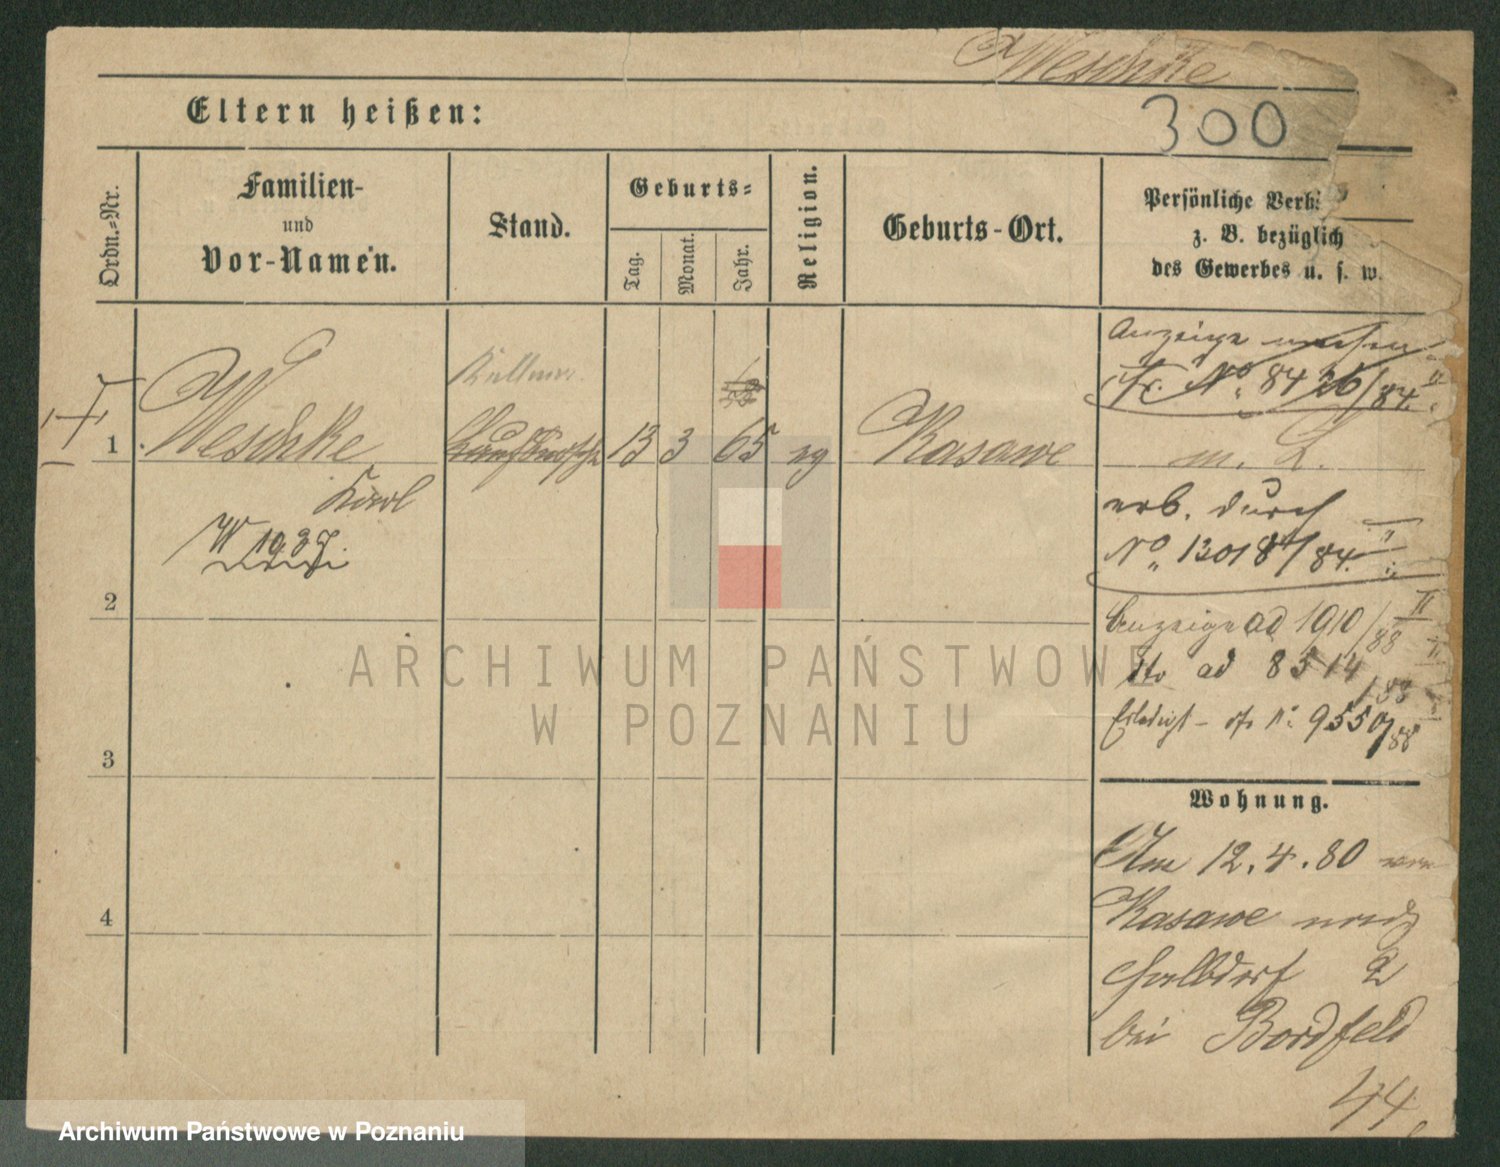 Weschke
Eltern heißen:
300
Ordn.-Nr.
Familien-
und
Vor-Namen.
Stand.
Geburts-
Tag.
Monat.
Jahr.
Religion.
Geburts-Ort.
Persönliche Verh.
z. B. bezüglich
des Gewerbes u. s. w.
1
Weschke
Karl
Kellner
13
3
65
eg
Kasawe
W 1937
Anzeige
No. 8426/84.
erb. durch
No. 13018/84.
Anzeige ad 1910/88
dto ad 8514/88
Erledigt No. 9550/88
2
3
4
Wohnung.
Am 12.4.80 von
Kasawe nach
Halbdorf 2
bei Bordfeld
44.
ARCHIWUM PAŃSTWOWE
W POZNANIU
Archiwum Państwowe w Poznaniu